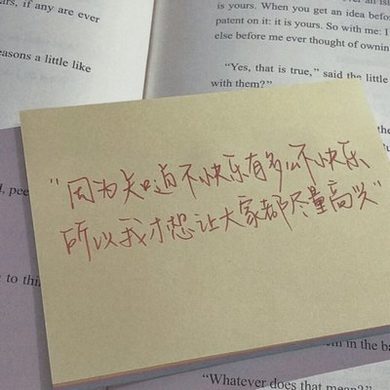 is yours. When you get an idea befor
patent on it: it is yours. So with me: I
else before me ever thought of ownin
"Yes, that is true," said the little
with them?"
ars, if any are ever
easons a little like
"因为知道不快乐有多么不快乐
所以我才想让大家都尽量高兴"
to thi
in the ba
"Whatever does that mean?"